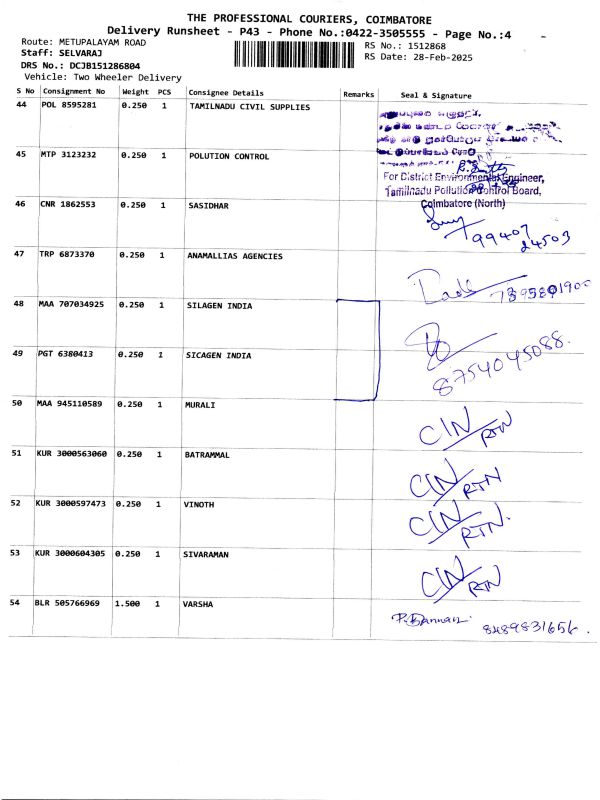 THE PROFESSIONAL COURIERS, COIMBATORE
Delivery Runsheet - P43 - Phone No.:0422-3505555 - Page No.:4
Route: METUPALAYAM ROAD
RS No.: 1512868
Staff: SELVARAJ
RS Date: 28-Feb-2025
DRS No.: DCJB151286804
Vehicle: Two Wheeler Delivery
S No Consignment No Weight PCS Consignee Details Remarks Seal & Signature
44 POL 8595281 0.250 1 TAMILNADU CIVIL SUPPLIES
45 MTP 3123232 0.250 1 POLUTION CONTROL
For District Environmental Engineer,
Tamilnadu Pollution Control Board,
Coimbatore (North)
46 CNR 1862553 0.250 1 SASIDHAR
99407
24503
47 TRP 6873370 0.250 1 ANAMALLIAS AGENCIES
48 MAA 707034925 0.250 1 SILAGEN INDIA
49 PGT 6380413 0.250 1 SICAGEN INDIA
8754045088.
50 MAA 945110589 0.250 1 MURALI
CIN/RTN
51 KUR 3000563060 0.250 1 BATRAMMAL
CIN/RTN
52 KUR 3000597473 0.250 1 VINOTH
CIN/RTN.
53 KUR 3000604305 0.250 1 SIVARAMAN
CIN/RTN
54 BLR 505766969 1.500 1 VARSHA